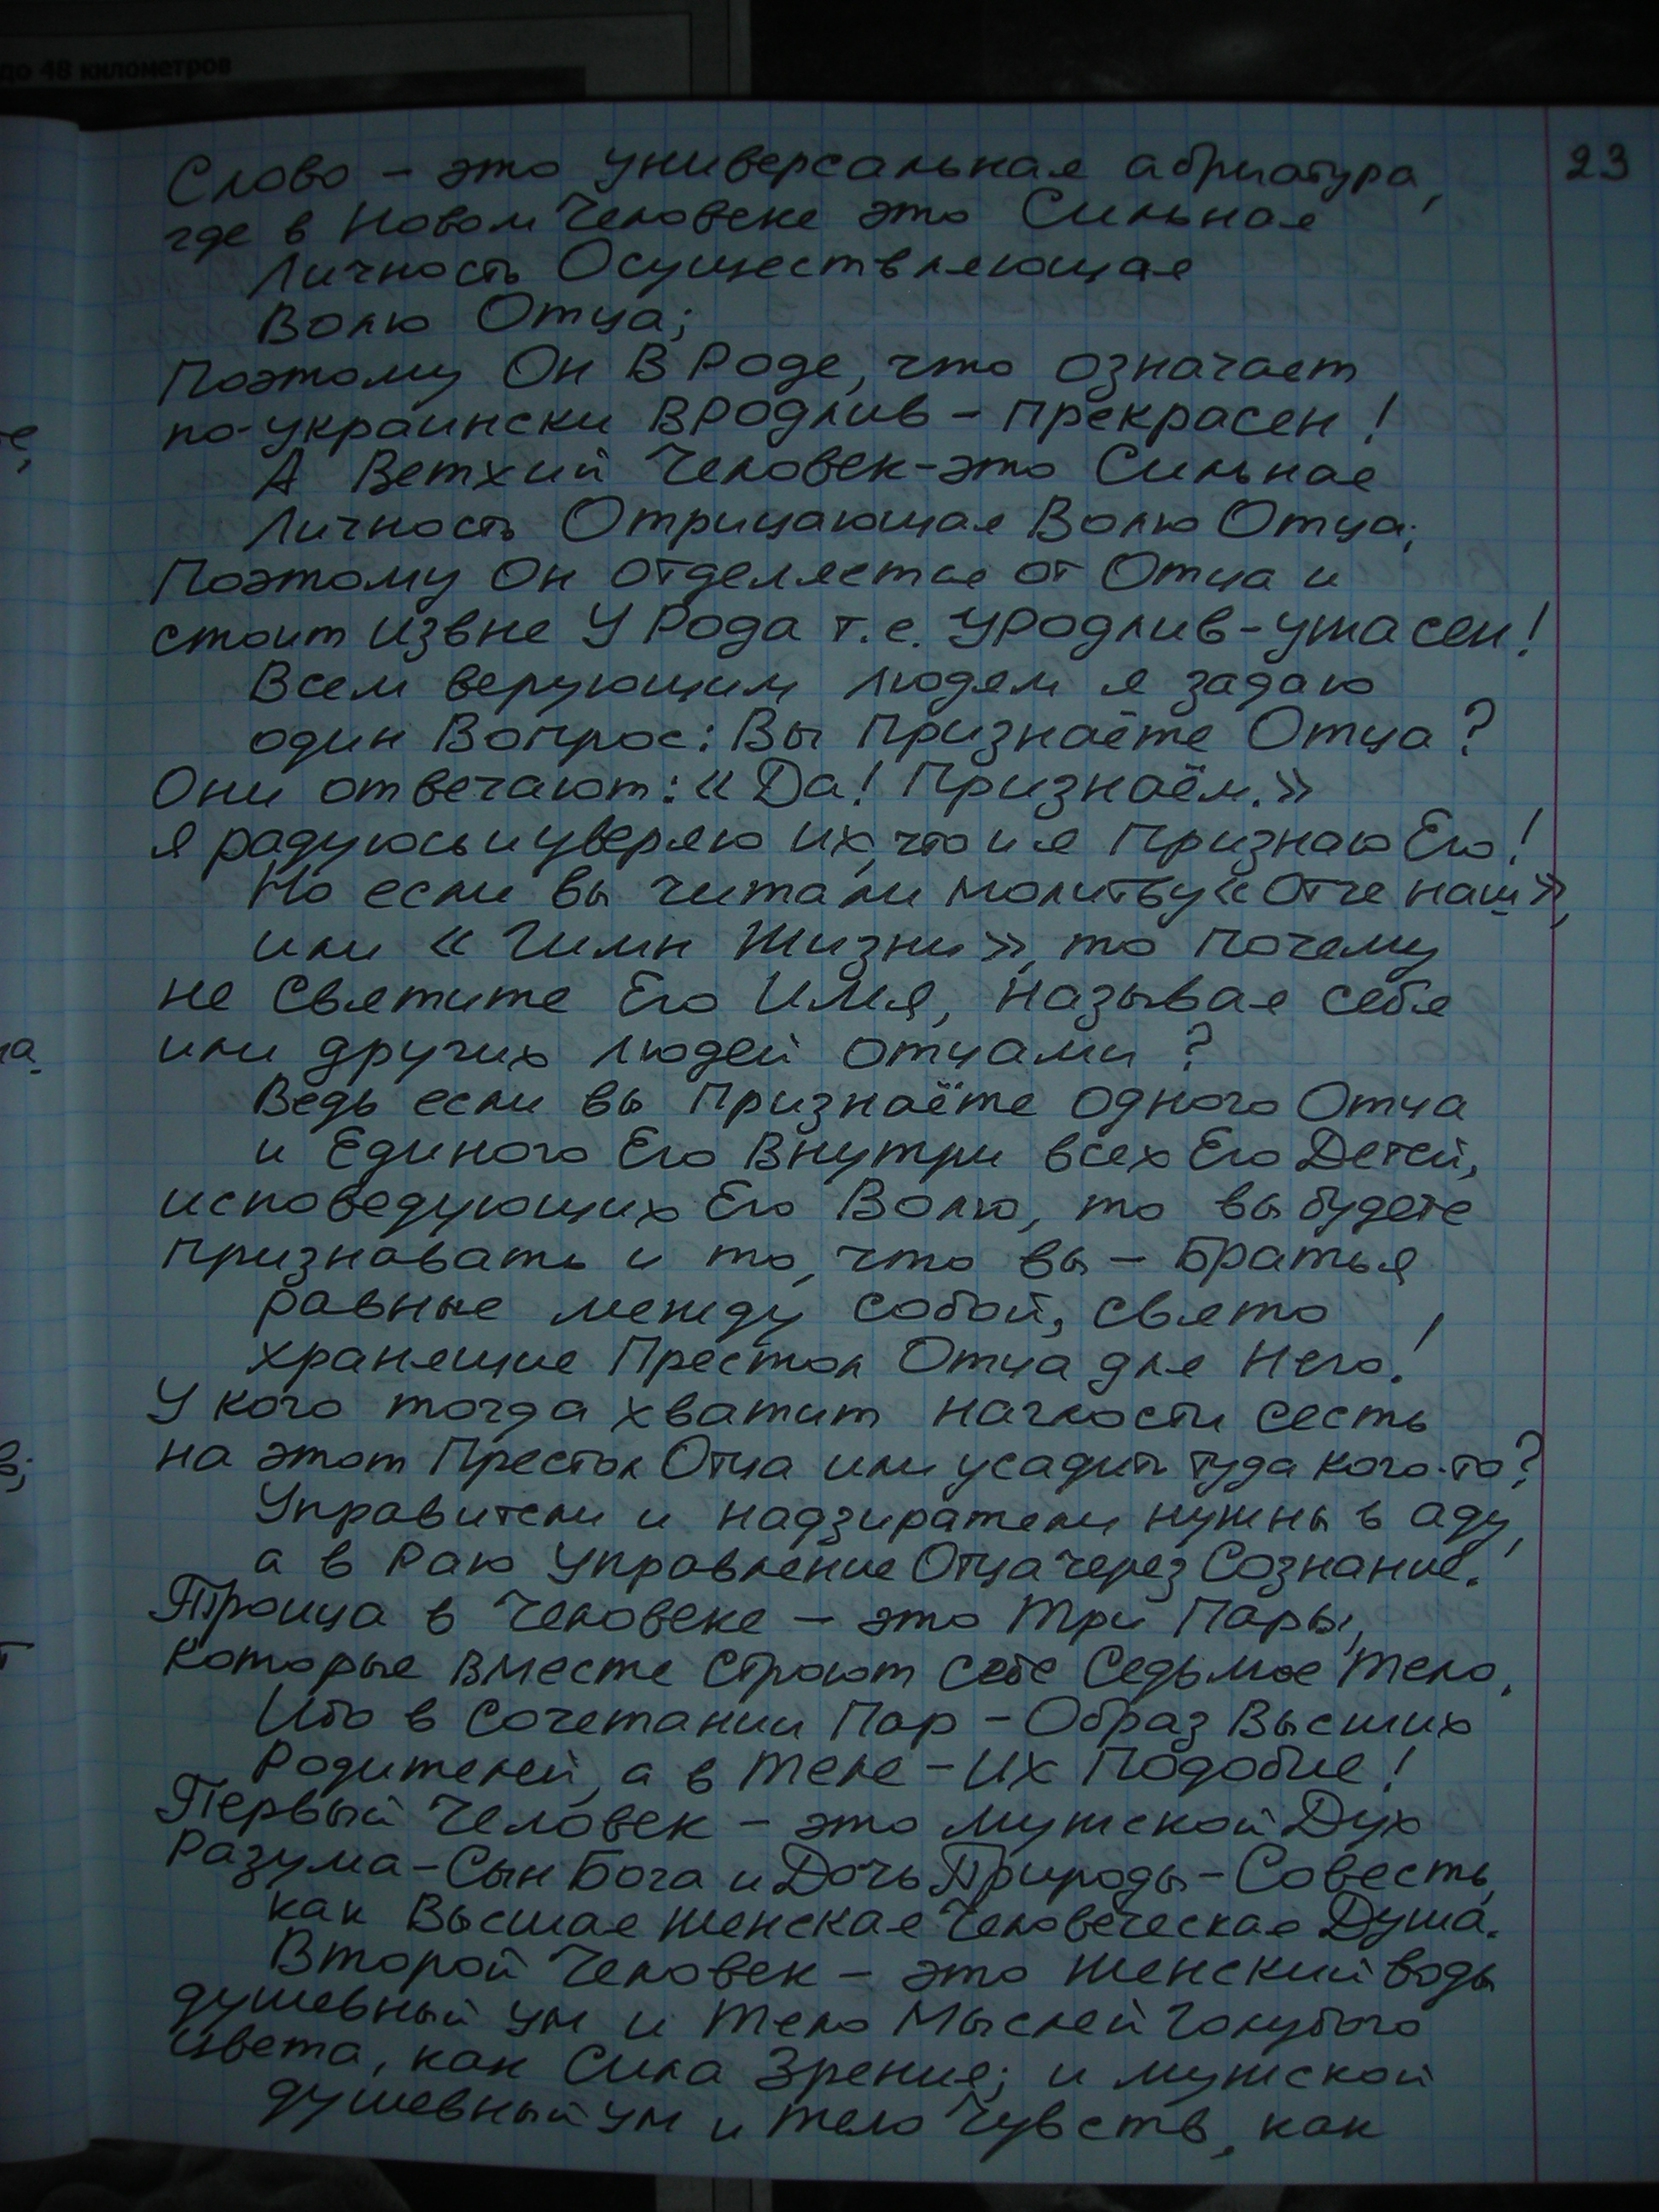 до 48 километров
23
Слово – это универсальная абриатура,
где в Новом Человеке это Сильная
Личность Осуществляющая
Волю Отца;
Поэтому Он В Роде, что означает
по-украински ВРОДлив – прекрасен!
А Ветхий Человек – это Сильная
Личность Отрицающая Волю Отца;
Поэтому Он отделяется от Отца и
стоит извне У Рода т.е. УРОДлив – ужасен!
Всем верующим людям я задаю
один Вопрос: Вы Признаёте Отца?
Они отвечают: «Да! Признаём.»
я радуюсь и уверяю их, что и я Признаю Его!
Но если вы читали молитву «Отче наш»,
или «Гимн Жизни», то почему
не Святите Его Имя, называя себя
или других людей отцами?
Ведь если вы Признаёте одного Отца
и Единого Его Внутри всех Его Детей,
исповедующих Его Волю, то вы будете
признавать и то, что вы – Братья
равные между собой, свято
хранящие Престол Отца для Него!
У кого тогда хватит наглости сесть
на этот Престол Отца или усадить туда кого-то?
Управители и надзиратели нужны в аду,
а в Раю Управление Отца через Сознание!
Троица в Человеке – это Три Пары,
которые вместе строят себе Седьмое Тело.
Ибо в Сочетании Пар – Образ Высших
Родителей, а в Теле – Их Подобие!
Первый Человек – это Мужской Дух
Разума – Сын Бога и Дочь Природы – Совесть,
как Высшая Женская Человеческая Душа.
Второй Человек – это Женский воды
душевный ум и Тело Мыслей Голубого
цвета, как Сила Зрения; и мужской
душевный ум и тело Чувств, как